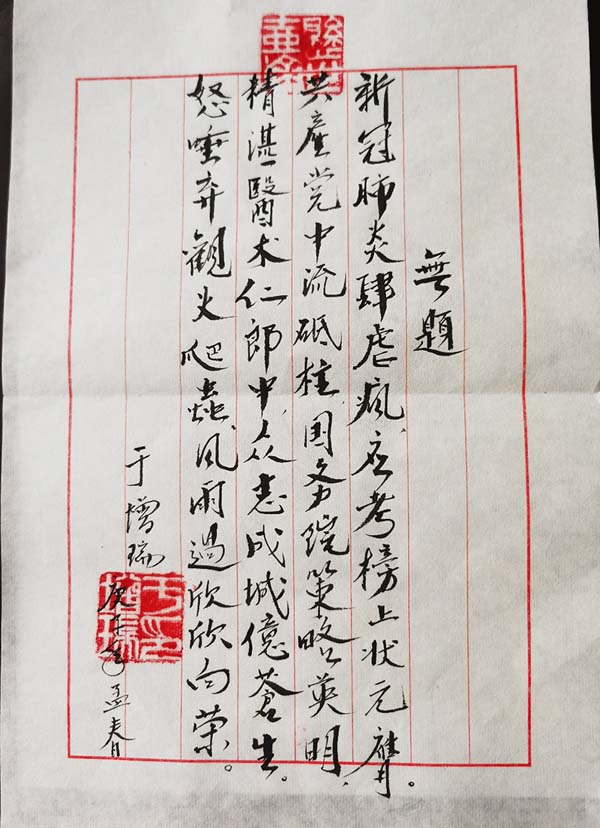 無題
新冠肺炎肆虐疯，应考榜上状元膺。
共產党中流砥柱，国务院策略英明，
精湛醫术仁郎中，众志成城億蒼生。
怒唾弃觀火爬蟲，风雨過欣欣向荣。
于增瑞
庚子年孟春